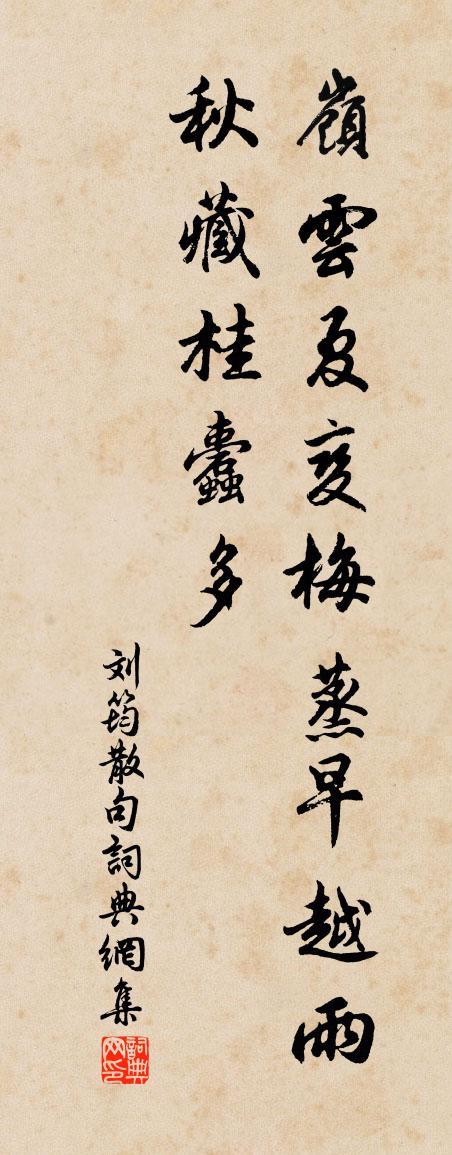 嶺雲夏变梅蒸早越雨
秋藏桂蠹多
刘筠散句詞典網集
詞典
网印